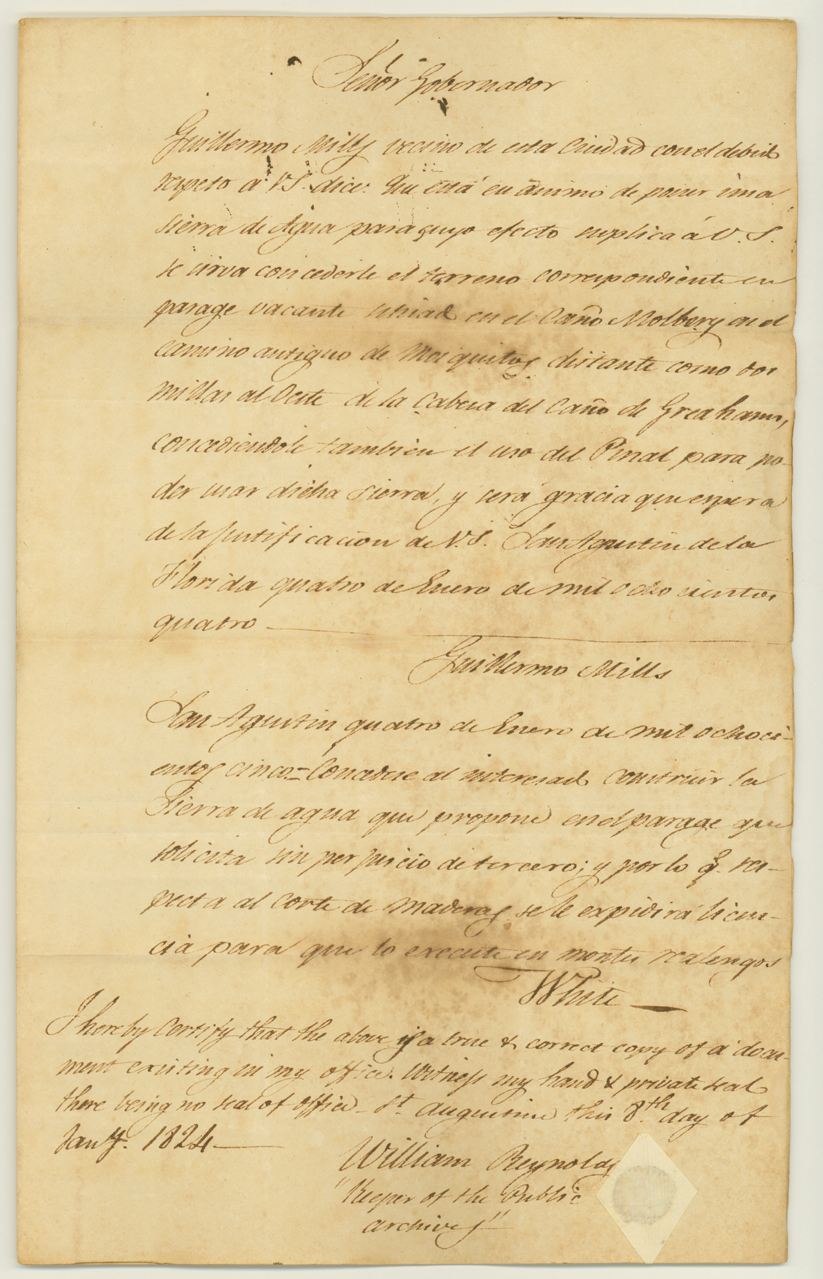 Señor Gobernador
Guillermo Mills vecino de esta Ciudad con el debido
respeto a V.S. dice: Que está en ánimo de poner una
sierra de Agua para cuyo efecto suplica á V. S.
se sirva concederle el terreno correspondiente en
parage vacante situad en el Caño Molbery en el
camino antiguo de Mosquitos distante como dos
millas al Oeste de la Cabesa del Caño de Greahams,
concediendole tambien el uso del Pinal para po-
der usar dicha sierra, y será gracia que espera
de la justificacion de V.S. San Agustin de la
Florida quatro de Enero de mil ocho cientos
quatro —
Guillermo Mills
San Agustin quatro de Enero de mil ochoci-
entos cinco = Concedese al interesad construir la
Sierra de agua que propone en el parage que
solicita sin perjuicio de tercero; y por lo q. res-
pecta al Corte de maderas se le expidirá licen-
cia para que lo execute en montes realengos
White —
I hereby Certify that the above is a true & correct copy of a docu-
ment existing in my office. Witness my hand & private seal
there being no seal of office - St Augustine this 8th day of
Jany. 1824 —
William Reynolds
"Keeper of the Public
archives"